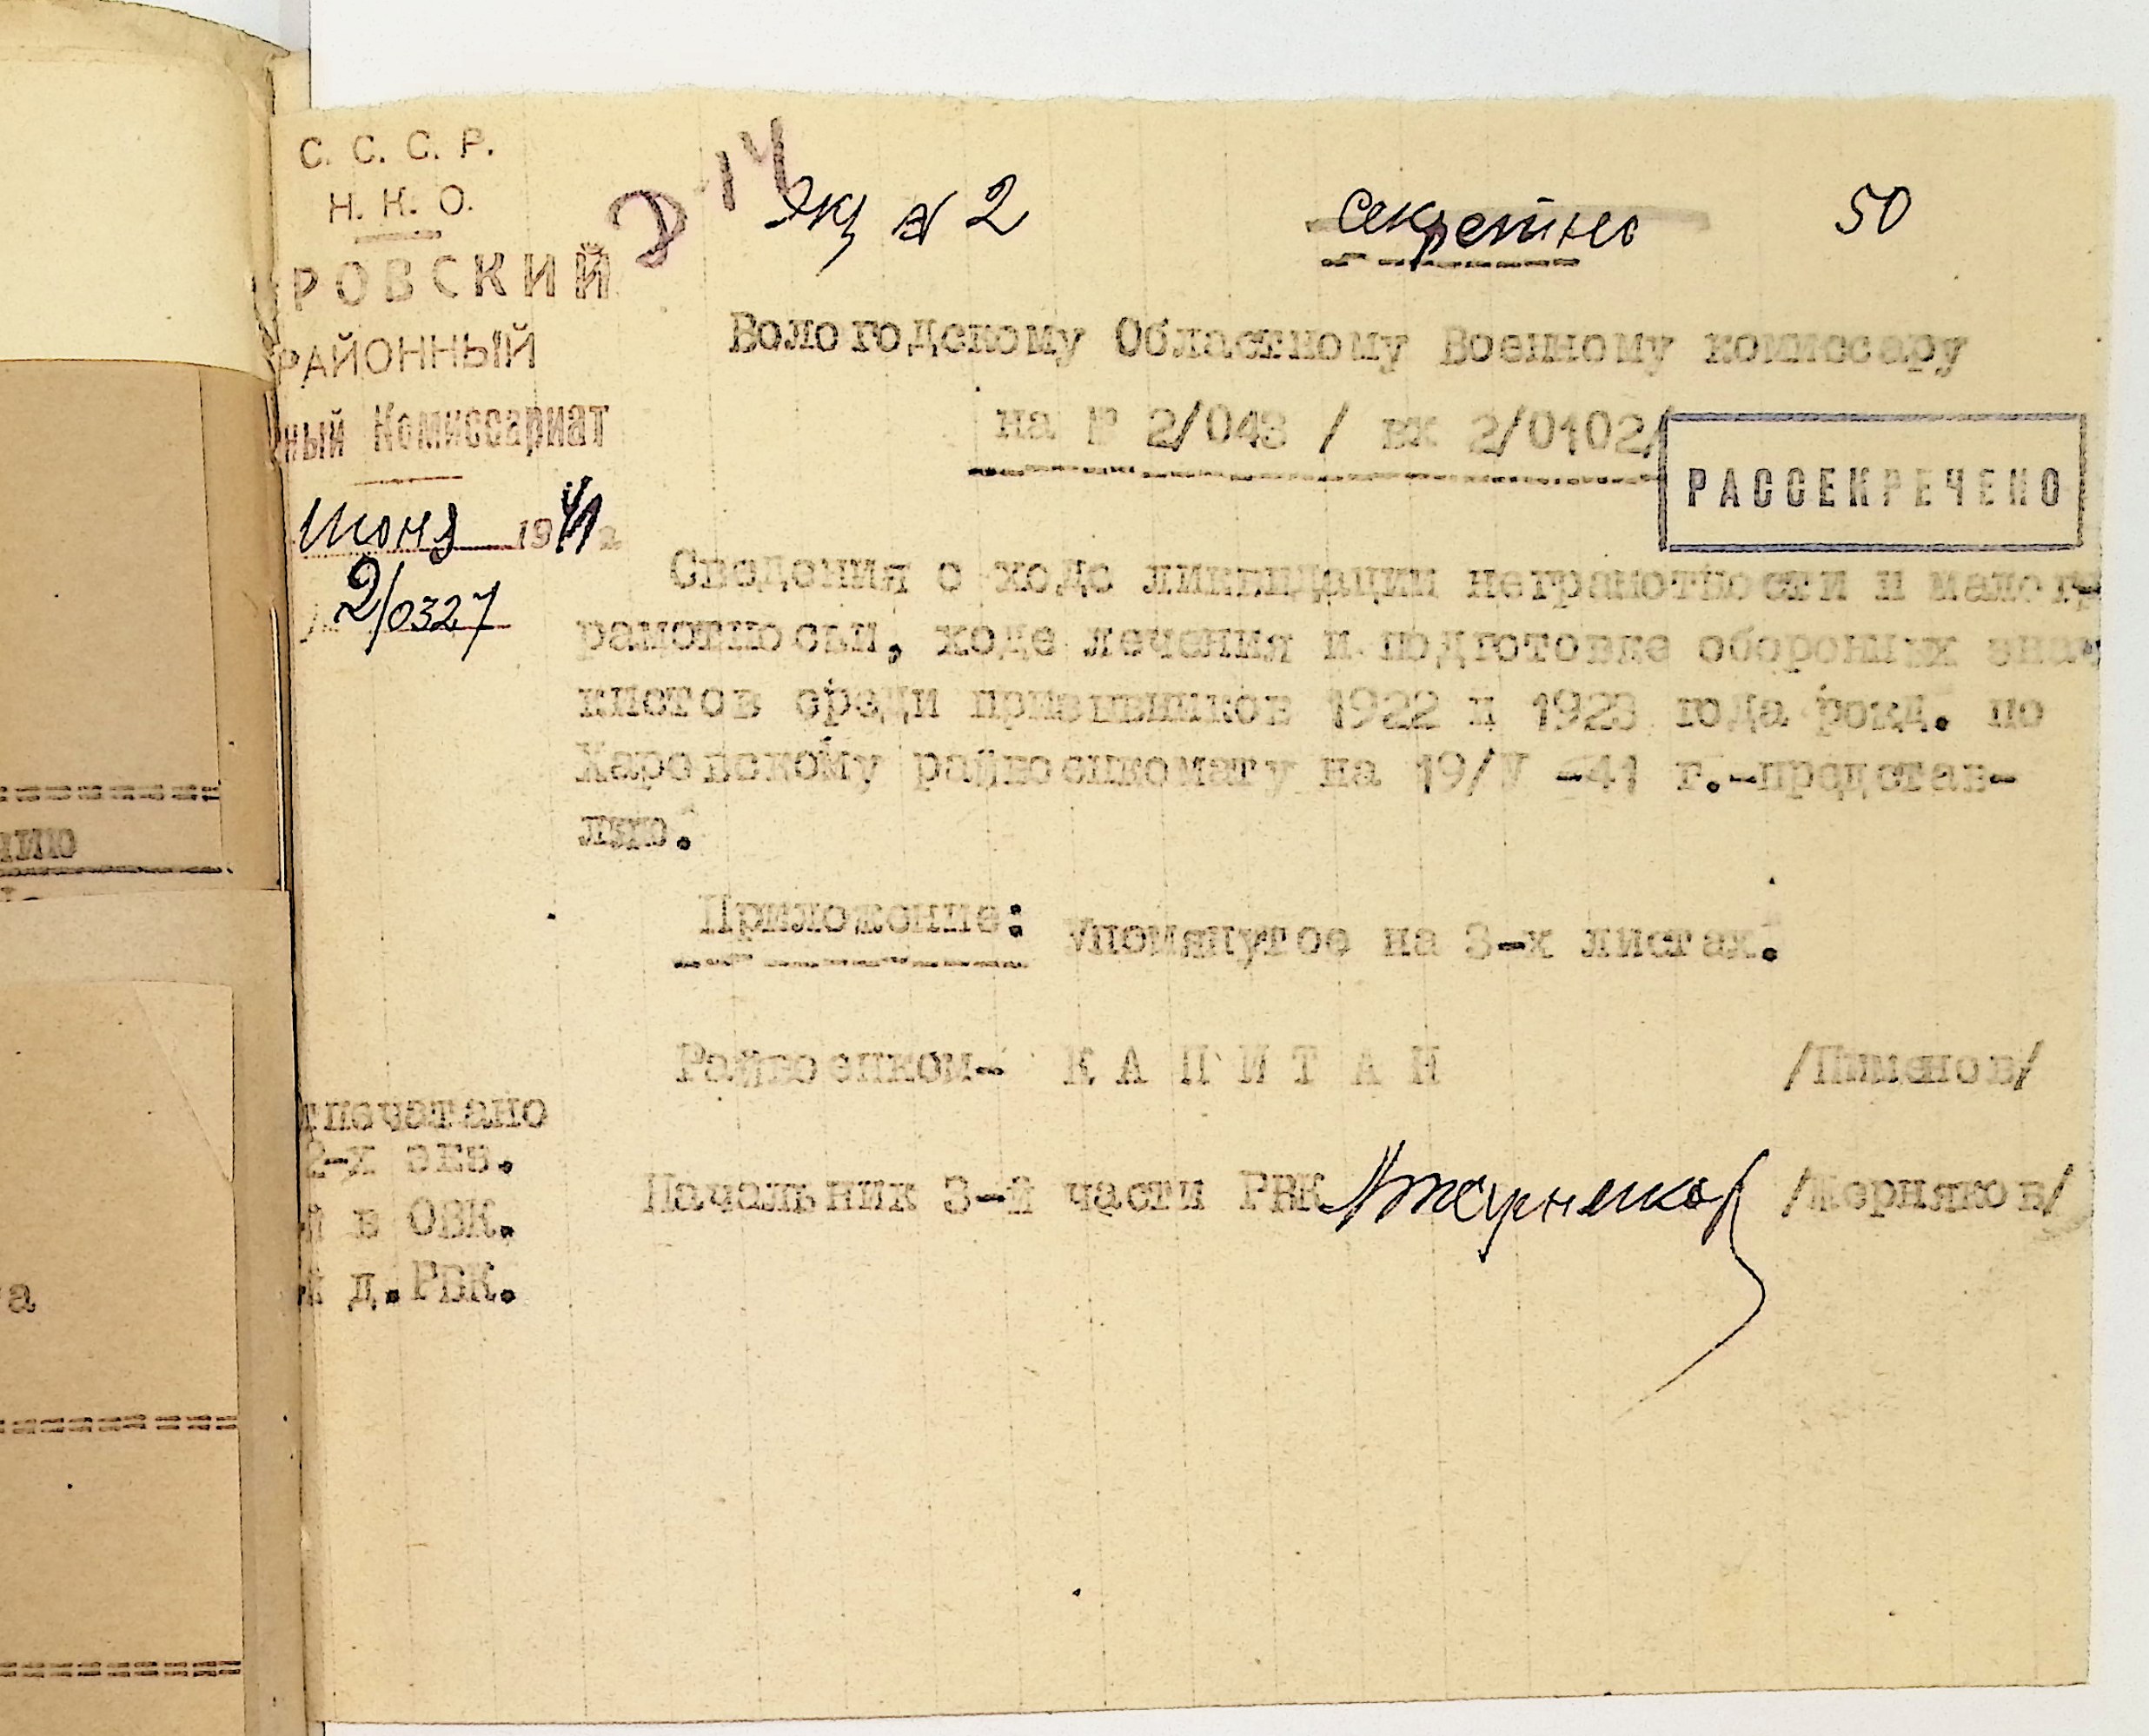 С. С. С. Р.
Н. К. О.
РОВСКИЙ
РАЙОННЫЙ
ный Комиссариат
июня 1941 г
2/0327
Экз № 2
Секретно
50
Вологодскому Областному Военному комиссару
на № 2/043 / вх 2/0102/
РАССЕКРЕЧЕНО
Сведения о ходе ликвидации неграмотности и малогр
рамотности, ходе лечения и подготовке оборонных знач
кистов среди призывников 1922 и 1923 года рожд. по
Харовскому райвоенкомату на 19/V -41 г.-представ-
ляю.
Приложение: Упомянутое на 3-х листах.
Райвоенком- К А П И Т А Н /Пименов/
Начальник 3-й части РВК /Жерняков/
тпечатано
2-х экз.
в ОВК.
д. РВК.